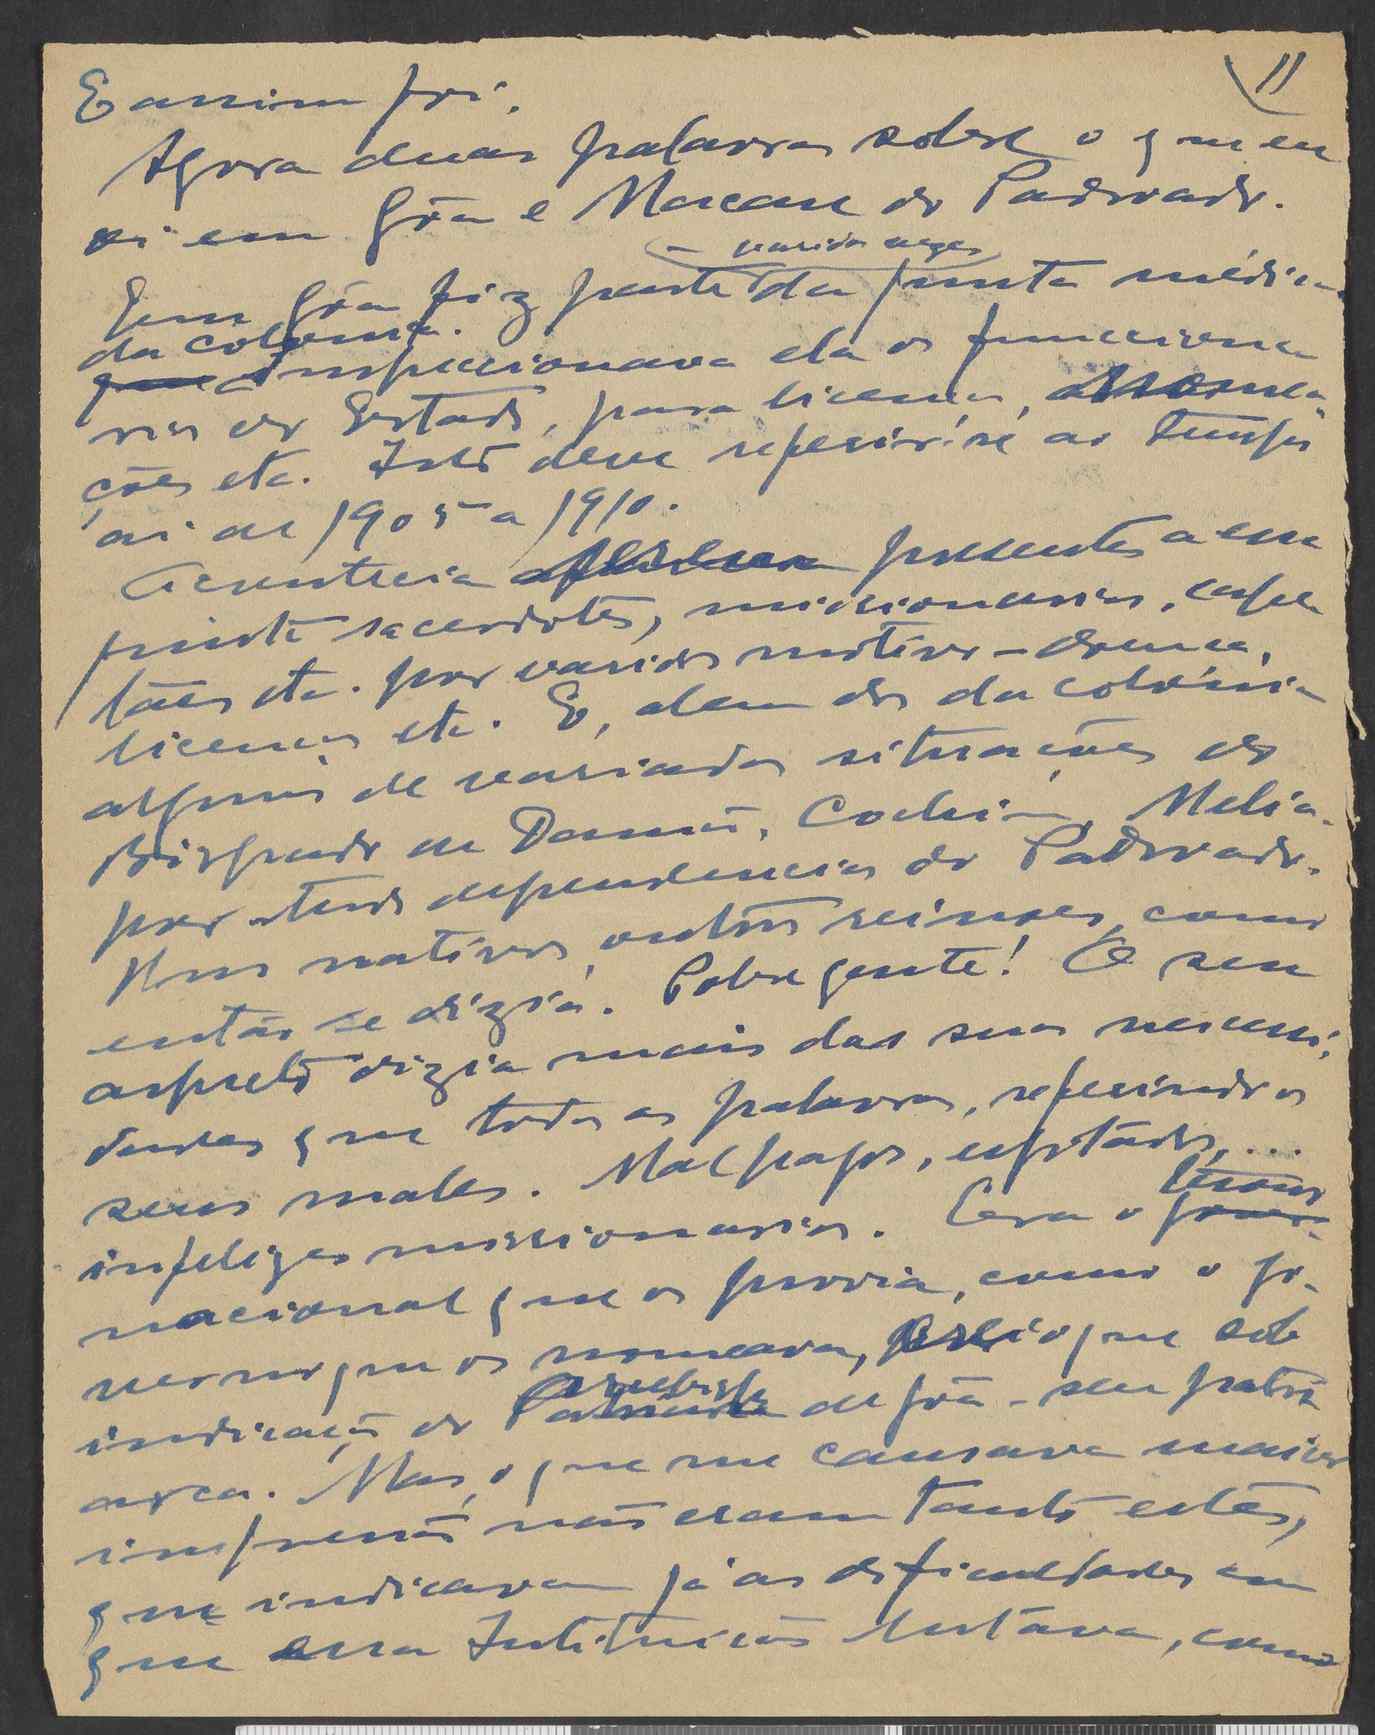 11
E assim foi.
Agora duas palavras sobre o que eu
vi em Gôa e Macau do Padroado.
– varias vezes
Em Gôa fiz parte da junta médica
da colonia.
Inspeccionava ela os funcciona
rios do Estado, para licenças,
ções etc. Isto deve referir-se ao tempo
ai de 1905 a 1910.
Acontecia presentes a essa
junta sacerdotes, missionarios, cape
lães etc. por varios motivos – doença,
licenças etc. E, alem dos da colónia
alguns de variadas situações do
Bispado de Damão, Cochim, Melia-
por tudo dependencias do Padroado.
Uns nativos, outros reinoes, como
então se dizia. Pobre gente! O seu
aspecto dizia mais das suas necessi-
dades que todas as palavras, referindo os
seus males. Mal pagos, esgotados, ...
infelizes missionarios. Era o
tesouro
nacional que os provia, como o go-
verno que os nomeava, que sob
arcebispo
indicação do de Gôa – seu patri
arca. Mas, o que me causava maior
impressão não eram tanto estes,
que indicavam já as dificuldades em
que essa Instituição estava, como